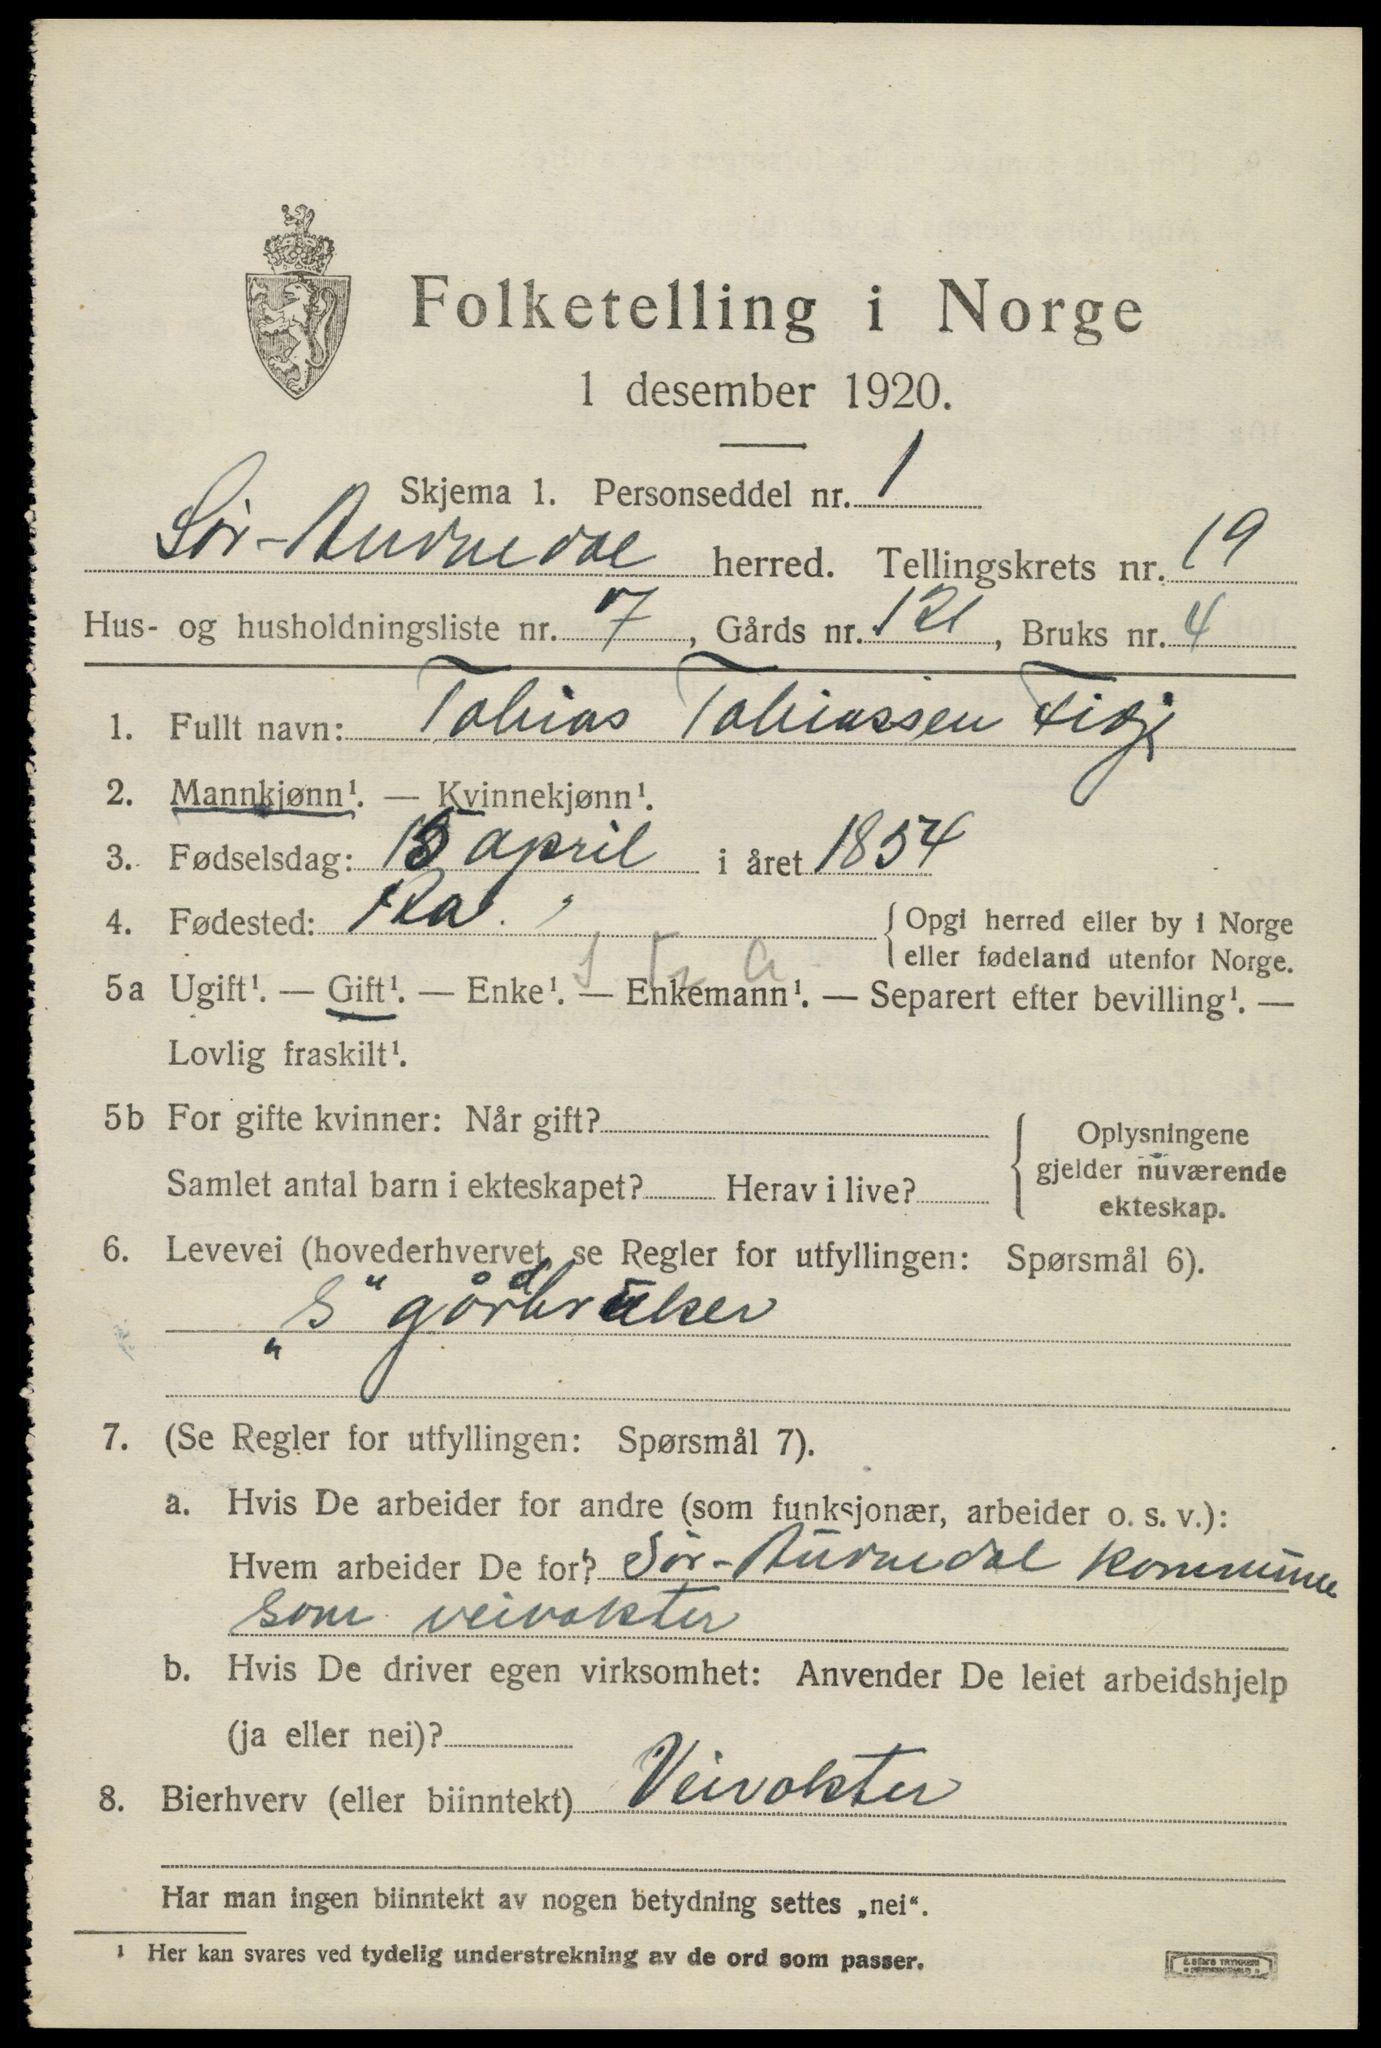 Folketelling i Norge
1 desember 1920.
Skjema 1. Personseddel nr. 1
Sør-Audnedal herred. Tellingskrets nr. 19
Hus- og husholdningsliste nr. 7, Gårds nr. 121, Bruks nr. 4
1. Fullt navn: Tobias Tobiassen
2. Mannkjønn¹. — Kvinnekjønn¹.
3. Fødselsdag: 15 april i året 1854
4. Fødested: {Opgi herred eller by i Norge
eller fødeland utenfor Norge.
5a Ugift¹. — Gift¹. — Enke¹. — Enkemann¹. — Separert efter bevilling¹. —
Lovlig fraskilt¹.
5b For gifte kvinner: Når gift? {Oplysningene
gjelder nuværende
Samlet antal barn i ekteskapet? Herav i live?
ekteskap.
6. Levevei (hovederhvervet, se Regler for utfyllingen: Spørsmål 6).
„S“ gårdbruker
7. (Se Regler for utfyllingen: Spørsmål 7).
a. Hvis De arbeider for andre (som funksjonær, arbeider o. s. v.):
Hvem arbeider De for? Sør-Audnedal kommune
som veivokter
b. Hvis De driver egen virksomhet: Anvender De leiet arbeidshjelp
(ja eller nei)?
8. Bierhverv (eller biinntekt) Veivokter
Har man ingen biinntekt av nogen betydning settes „nei“.
¹ Her kan svares ved tydelig understrekning av de ord som passer.